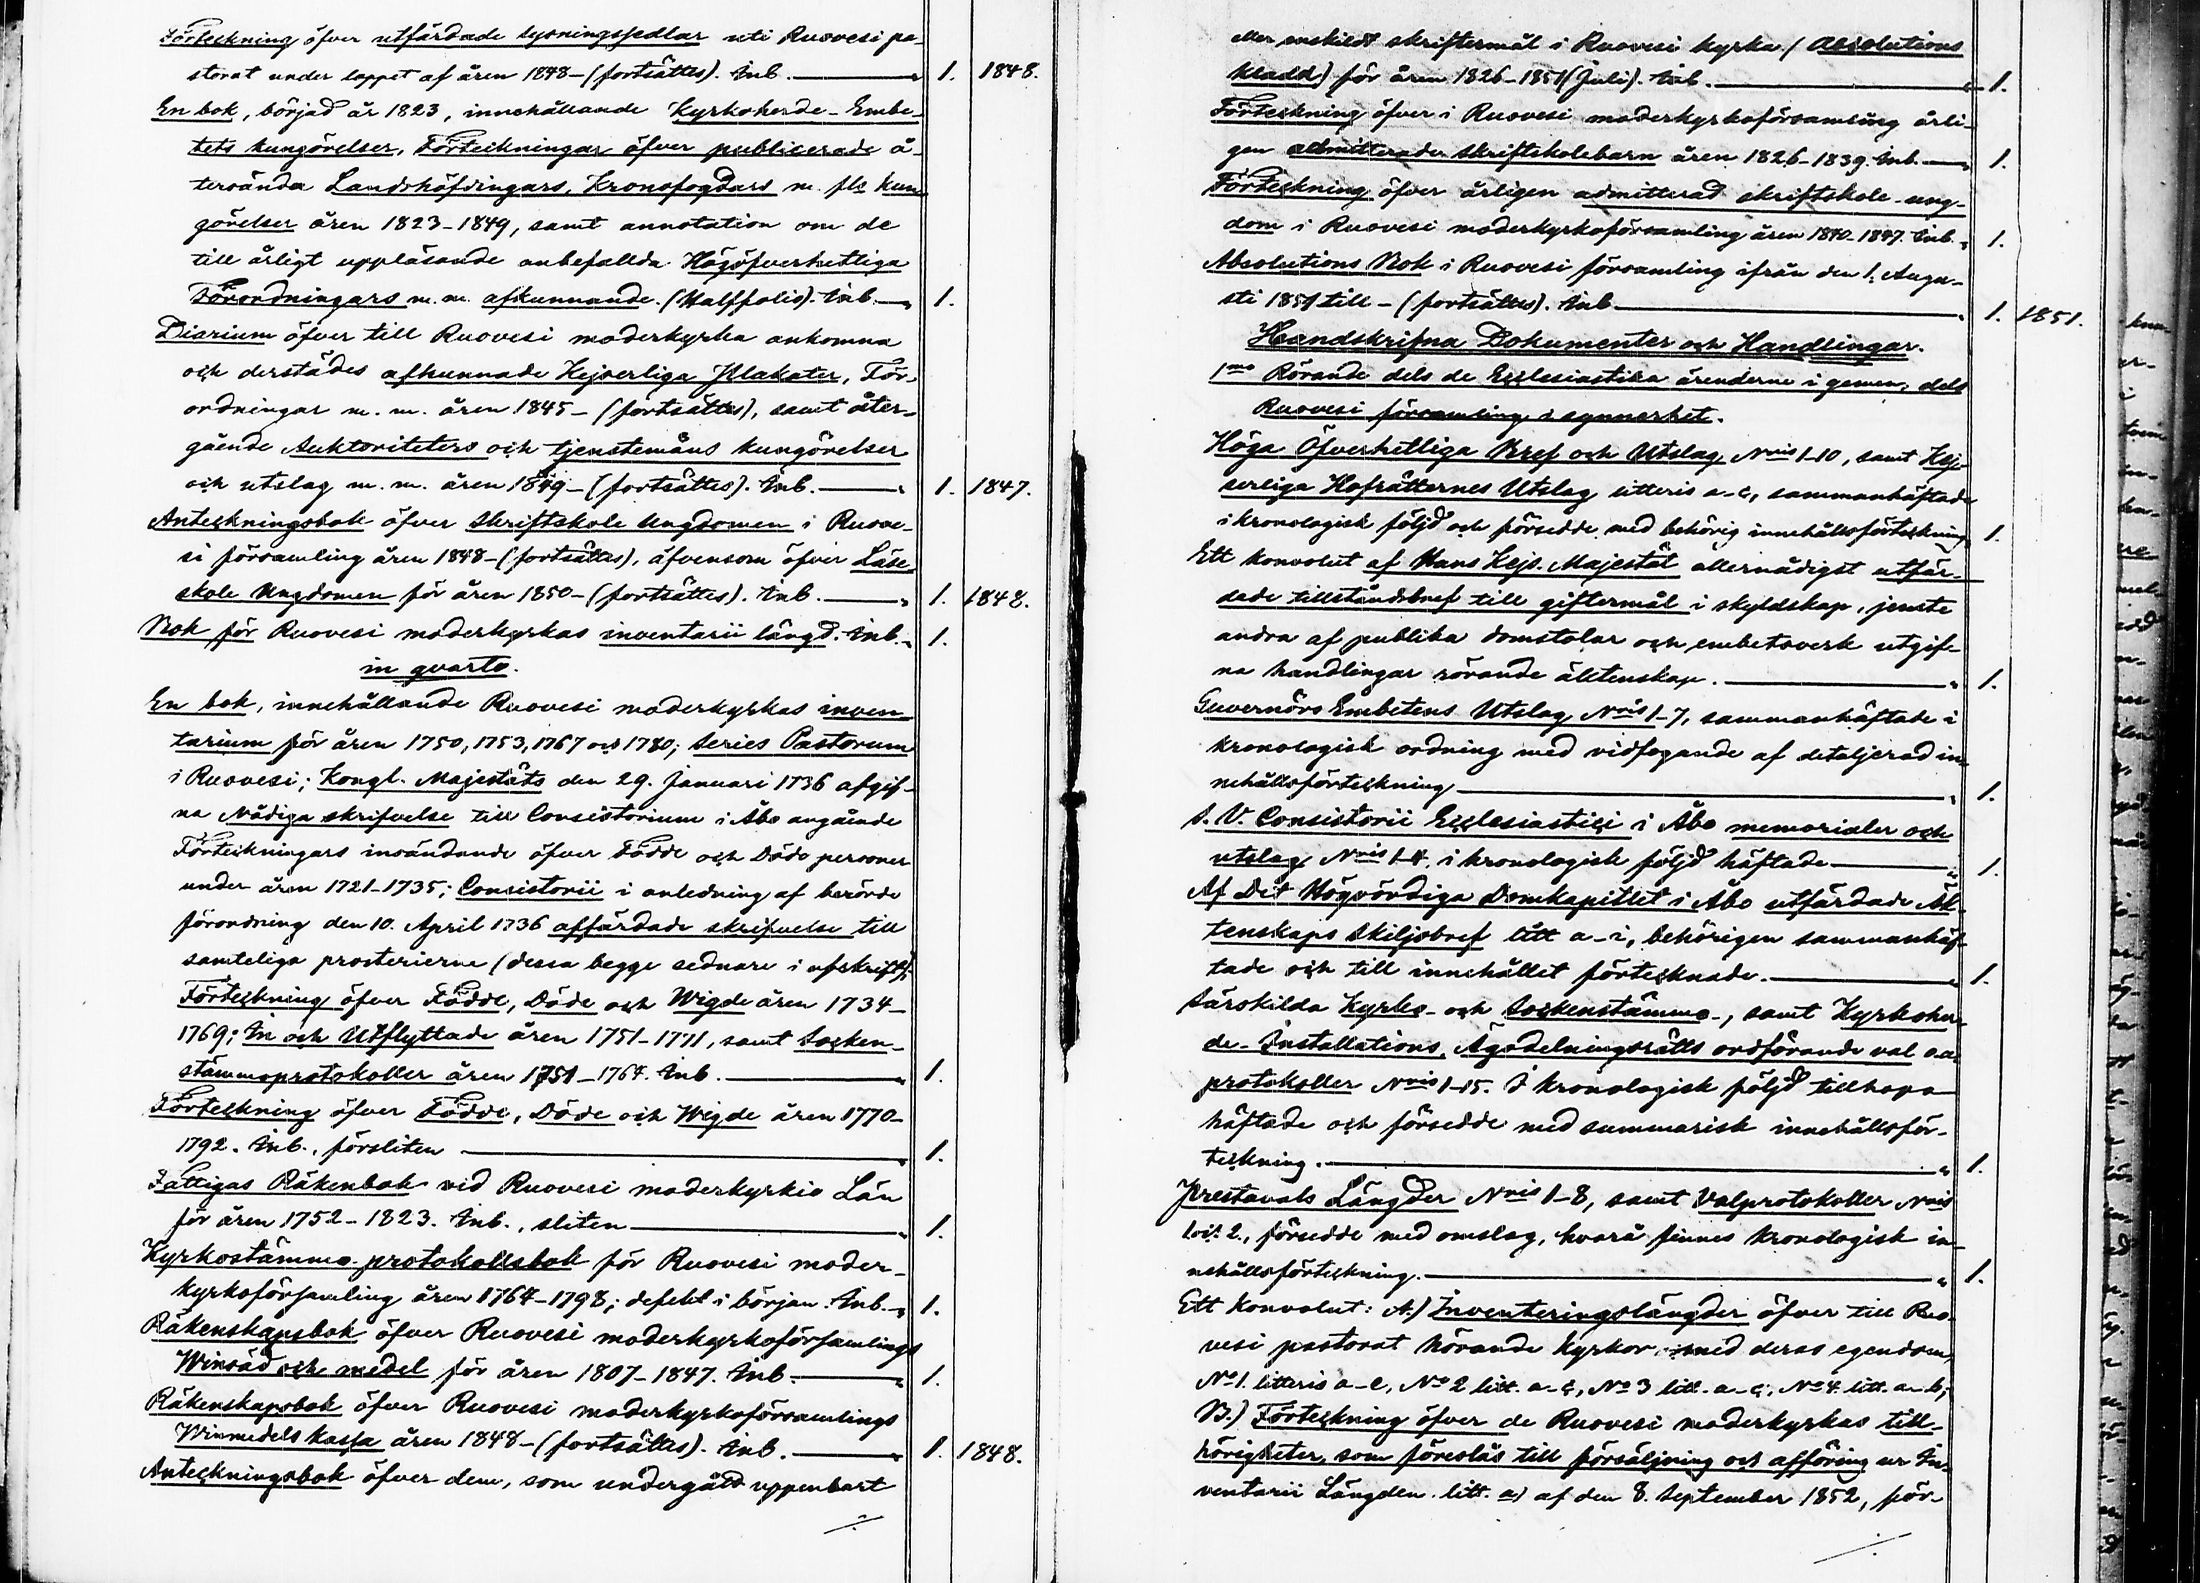 Förteckning öfver utfärdade lysningssedlar uti Ruovesi pa-
storat under loppet af åren 1848-(fortsättes). Inb. " 1. 1848.
En bok, börjad år 1823, innehållande Kyrkoherde-Embe-
tets kungörelser, Förteckningar öfver publicerade å-
tersända Landshöfdingars, Kronofogdars m. fls kun-
görelser åren 1823-1849, samt annotation om de
till årligt uppläsande anbefallda Högöfverhetliga
Förordningars m. m. afkunnande. (Halffolio). Inb. " 1.
Diarium öfver till Ruovesi moderkyrka ankomna
och derstädes afkunnade Kejserliga Plakater, För-
ordningar m. m. åren 1845-(fortsättes), samt åter-
gående Auktoriteters och tjenstemäns kungörelser
och utslag m. m. åren 1849-(fortsättes). Inb. " 1. 1847.
Anteckningsbok öfver Skriftskole Ungdomen i Ruove-
si församling åren 1848-(fortsättes), äfvensom öfver Läse
skole Ungdomen för åren 1850-(fortsättes). Inb. " 1. 1848.
Bok för Ruovesi moderkyrkas inventarii längd. Inb. " 1.
in qvarto.
En bok, innehållande Ruovesi moderkyrkas inven-
tarium för åren 1750, 1753, 1767 och 1780; Series Pastorum
i Ruovesi; Kongl. Majestäts den 29. Januari 1736 afgif-
na Nådiga skrifvelse till Consistorium i Åbo angående
Förteckningars insändande öfver Födde och Döde personer
under åren 1721-1735; Consistorii i anledning af berörde
förordning den 10. April 1736 affärdade skrifvelse till
samteliga prosterierne (dessa begge sednare i afskrift);
Förteckning öfver Födde, Döde och Wigde åren 1734-
1769; In och Utflyttade åren 1751-1771, samt Socken-
stämmoprotokoller åren 1751-1764. Inb. " 1.
Förteckning öfver Födde, Döde och Wigde åren 1770-
1792. Inb., försliten " 1.
Fattigas Räkenbok vid Ruovesi moderkyrkio Län
för åren 1752-1823. Inb., sliten " 1.
Kyrkostämmo-protokollsbok för Ruovesi moder-
kyrkoförsamling åren 1764-1798; defekt i början. Inb. " 1.
Räkenskapsbok öfver Ruovesi moderkyrkoförsamlings
Winsäd och medel för åren 1807-1847. Inb. " 1.
Räkenskapsbok öfver Ruovesi moderkyrkoförsamlings
Winmedels kassa åren 1848-(fortsättes). Inb. " 1. 1848.
Anteckningsbok öfver dem, som undergått uppenbart
eller enskildt skriftermål i Ruovesi kyrka (Absolutions
kladd) för åren 1826-1851 (Juli). Inb. " 1.
Förteckning öfver i Ruovesi moderkyrkoförsamling årli-
gen admitterade skriftskolebarn åren 1826-1839. Inb. " 1.
Förteckning öfver årligen admitterad skriftskole-ung-
dom i Ruovesi moderkyrkoförsamling åren 1840-1847. Inb. " 1.
Absolutions Bok i Ruovesi församling ifrån den 1. Augu-
sti 1851 till-(fortsättes). Inb " 1. 1851.
Handskrifna Dokumenter och Handlingar.
1mo Rörande dels de Ecclesiastika ärenderne i gemen, dels
Ruovesi församling i synnerhet.
Höga Öfverhetliga Bref och Utslag Nris 1-10, samt Kej-
serliga Hofrätternes Utslag litteris a-c, sammanhäftade
i kronologisk följd och försedde med behörig innehållsförteckning " 1.
Ett konvolut af Hans Kejs. Majestät allernådigst utfär-
dade tillståndsbref till giftermål i skyldskap, jemte
andra af publika domstolar och embetsverk utgif-
na handlingar rörande äktenskap. " 1.
Guvernörs Embetens Utslag Nris 1-7, sammanhäftade i
kronologisk ordning med vidfogande af detaljerad in-
nehållsförteckning " 1.
S. V. Consistorii Ecclesiastici i Åbo memorialer och
utslag Nris 1-4. i kronologisk följd häftade " 1.
Af Det Högvördiga Domkapitlet i Åbo utfärdade Äk-
tenskaps Skiljobref litt a-i, behörigen sammanhäf-
tade och till innehållet förtecknade. " 1.
Särskilda Kyrko- och Sockenstämmo-, samt Kyrkoher-
de-Installations, Ägodelningsrätts ordförande val o.a.
protokoller Nris 1-15. I kronologisk följd tillhopa
häftade och försedde med summarisk innehållsför-
teckning. " 1.
Prestavals Längder Nris 1-8, samt Valprotokoller Nris
1. och 2., försedde med omslag, hvarå finnes kronologisk in-
nehållsförteckning. " 1.
Ett Konvolut: A.) Inventeringslängder öfver till Ruo-
vesi pastorat hörande Kyrkor med deras egendom,
No 1. litteris a-e, No 2 litt. a-c, No 3 litt. a-c, No 4. litt. a-b;
B.) Förteckning öfver de Ruovesi moderkyrkas till-
hörigheter, som föreslås till försäljning och afföring ur In-
ventarii Längden litt. a) af den 8. September 1852, för-